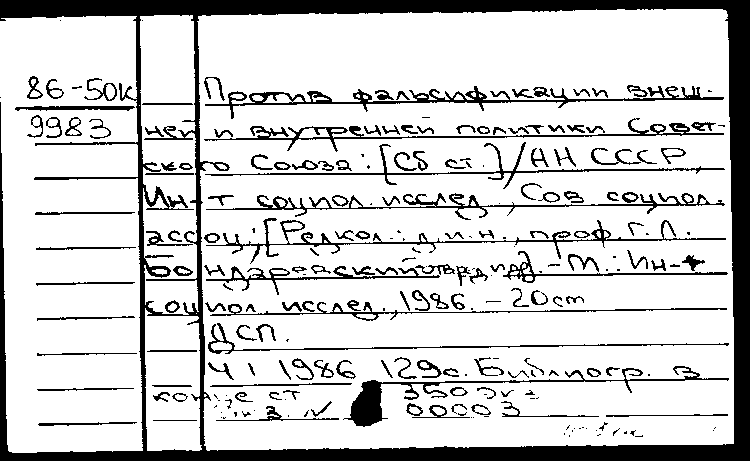 86-50к Против фальсификации внеш-
9983 ней и внутренней политики Совет-
ского Союза: [Сб ст.] / АН СССР,
Ин-т социол. исслед., Сов социол.
ассоц.; [Редкол.: д.и.н., проф. Г.Л.
Бондаревский (отв. ред.) и др.]. - М.: Ин-т
социол. исслед., 1986. - 20 см
ДСП.
Ч 1 1986 129с. Библиогр. в
конце ст 350 экз
00003